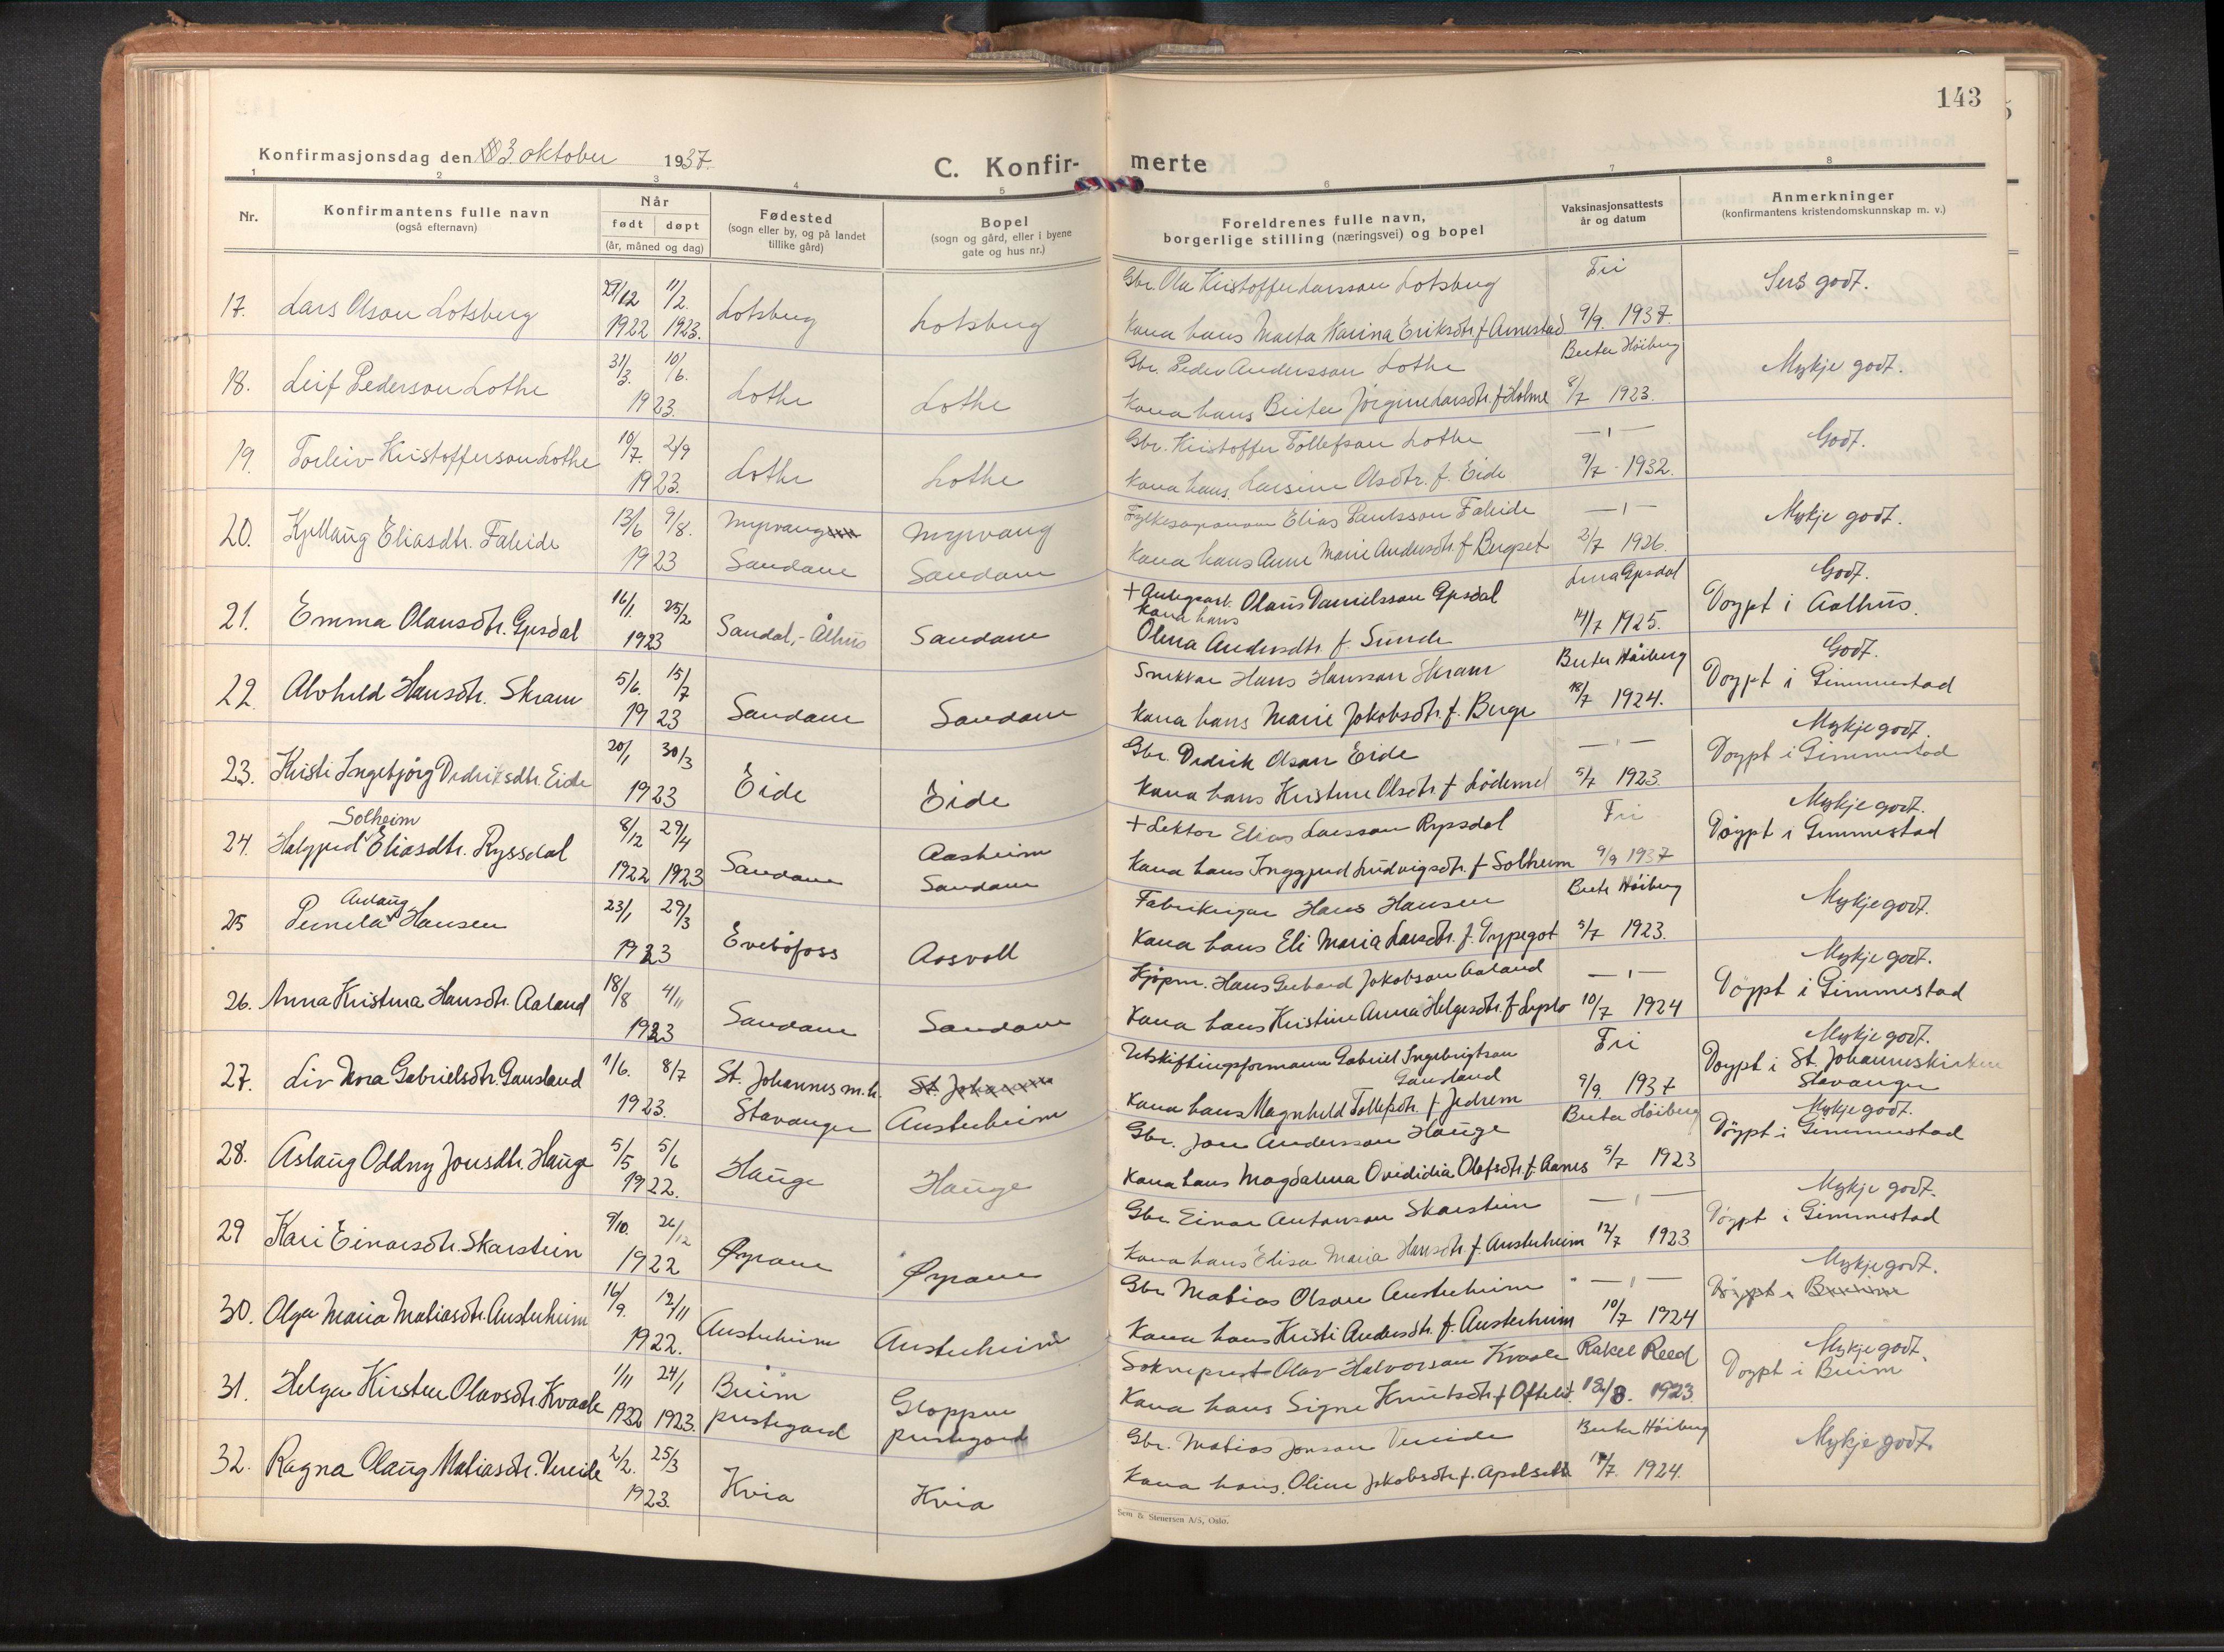 143
Konfirmasjonsdag den 3 oktober 1937.
C. Konfir- merte
1 2 3 4 5 6 7 8
Nr.
Konfirmantens fulle navn
(også efternavn)
Når
født døpt
(år, måned og dag)
Fødested
(sogn eller by, og på landet
tillike gård)
Bopel
(sogn og gård, eller i byene
gate og hus nr.)
Foreldrenes fulle navn,
borgerlige stilling (næringsvei) og bopel
Vaksinasjonsattests
år og datum
Anmerkninger
(konfirmantens kristendomskunnskap m. v.)
17. Lars Olson Lotsberg 27/12 1922 11/2. 1923. Lotsberg Lotsberg Gbr. Ola Kristoffer Larsson Lotsberg Fri Sers godt.
Kona hans Marta Karina Eriksdtr. f. Arnestad 9/9. 1937.
18. Leif Pederson Lothe 31/3. 10/6. 1923. Lothe Lothe Gbr. Peder Andersson Lothe Berta Höiberg Mykje godt.
Kona hans Brite Jörgine Larsdtr. f. Holme 8/7 1923.
19. Torleiv Kristofferson Lothe 10/7. 2/9 1923. Lothe Lothe Gbr. Kristoffer Tollefson Lothe — ı — Godt.
Kona hans Larsine Olsdtr. f. Eide 9/7 - 1932.
20. Kjellaug Eliasdtr. Faleide 13/6 9/8. 1923 Myrvang Sandane Myrvang Sandane Elias Paulsson Faleide — ı — Mykje godt.
Kona hans Anne Marie Andersdtr. f. Bergset 2/7 1926.
21. Emma Olausdtr. Gjesdal 16/1 25/2 1923 Sandal, - Ålhus Sandane + Olaus Danielsson Gjesdal Lina Gjesdal Godt.
Kona hans
Olina Andersdtr. f. Sunde 14/7 1925. Döypt i Aalhus.
22. Alvhild Hansdtr. Skram 5/6. 15/7 1923 Sandane Sandane Snikkar Hans Hansson Skram Berta Höiberg Godt.
Kona hans Marie Jakobsdtr. f. Berge 18/7 1924. Döypt i Gimmestad
23. Kristi Ingebjörg Didriksdtr. Eide 20/1 30/3 1923 Eide Eide Gbr. Didrik Olson Eide — ı — Mykje godt.
Kona hans Kristine Olsdtr. f. Lödemel 5/7 1923 Döypt i Gimmestad
24. Halgjerd Solheim Eliasdtr. Ryssdal 8/12 1922 29/4 1923 Sandane Aasheim Sandane + Lektor Elias Larsson Ryssdal Fri Mykje godt.
Kona hans Inggjerd Ludvigsdtr. f. Solheim 9/9 1937 Döypt i Gimmestad
25 Pernela Aslaug Hansen 23/1 29/3 1923 Eveböfoss Aasvoll Fabrikeigar Hans Hansen Berta Höiberg Mykje godt.
Kona hans Eli Maria Larsdtr. f. Mypegot 5/7 1923.
26. Anna Kristina Hansdtr. Aaland 18/8 4/11 1923 Sandane Sandane Kjöpm. Hans Gerhard Jakobson Aaland — ı — Mykje godt.
Kona hans Kristine Anna Helgesdtr. f. 10/7 1924 Döypt i Gimmestad
27. Liv Nora Gabrielsdtr. Gausland 1/6. 8/7 1923. St. Johannes m.h. Stavanger Austerheim Utskiftingsformann Gabriel Ingebrigtson Gausland Fri Mykje godt.
Kona hans Magnhild Tollefsdtr. f. Jedrem 9/9. 1937 Döypt i St. Johanneskirken Stavanger
28. Aslaug Oddny Jonsdtr. Hauge 5/5 5/6 1922. Hauge Hauge Gbr. Jon Andersson Hauge Berta Höiberg Mykje godt.
Kona hans Magdalena Ovididia Olafsdtr. f. Aanes 5/7 1923 Döypt i Gimmestad
29 Kari Einarsdtr. Skarstein 9/10. 26/12 1922 Øyrane Øyrane Gbr. Einar Antonson Skarstein — ı — Mykje godt.
Kona hans Elisa Maria Hansdtr. f. Austerheim 12/7 1923 Döypt i Gimmestad
30. Olga Maria Matiasdtr. Austerheim 16/9. 12/11 1922. Austerheim Austerheim Gbr Matias Olson Austerheim — ı — Mykje godt.
Kona hans Kristi Andersdtr. f. Austerheim 10/7 1924 Döypt i Breim
31. Helga Kirsten Olavsdtr. Kvaale 1/11 1922 24/1 1923. Breim prestegard Gloppen prestegard Sokneprest Olav Halvorson Kvaale Rakel Reed Mykje godt.
Kona hans Signe Knutsdtr. f. Oftelid. 18/8. 1923. Döypt i Breim
32. Ragna Olaug Matiasdtr. Vereide 2/2. 25/3 1923. Kvia Kvia Gbr. Matias Jonson Vereide Berta Höiberg Mykje godt.
Kona hans Oline Jakobsdtr. f. Apalseth 1924.
Sem & Stenersen A/S, Oslo.